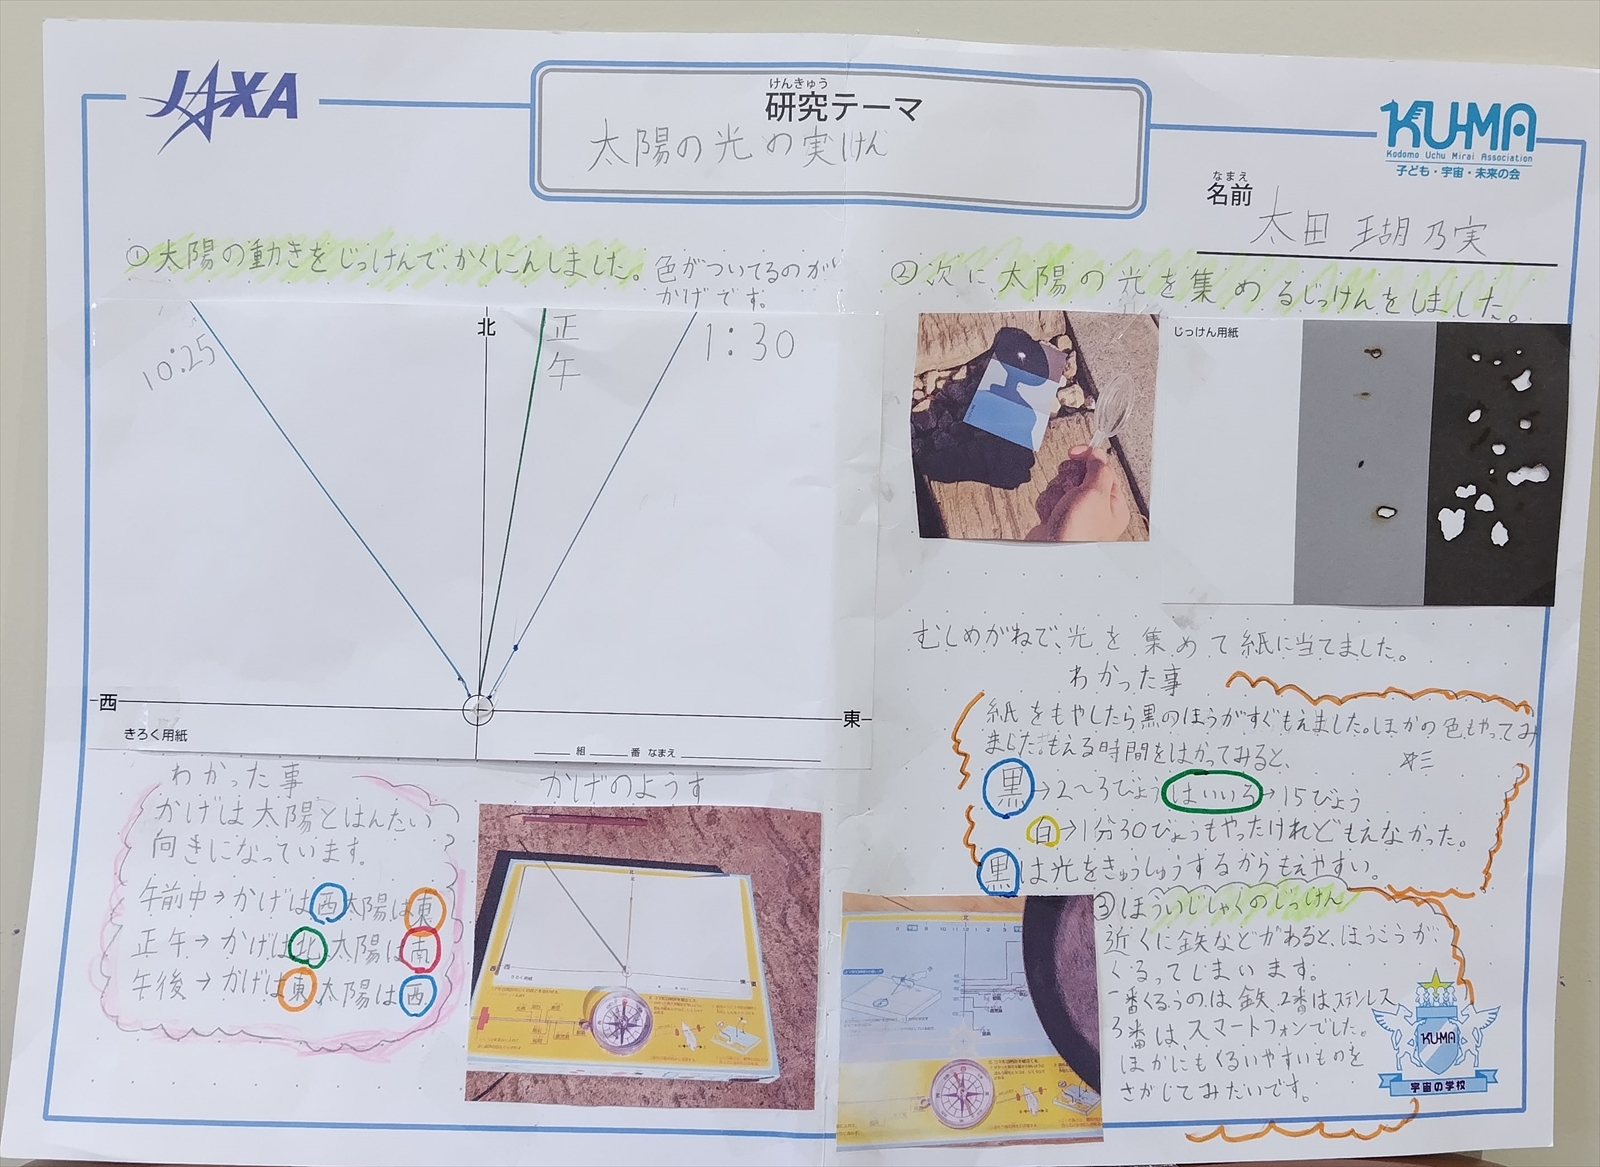 JAXA
けんきゅう
研究テーマ
太陽の光の実けん
KU-MA
Kodomo Uchu Mirai Association
子ども・宇宙・未来の会
なまえ
名前
太田 瑚乃実
①太陽の動きをじっけんで、かくにんしました。
色がついてるのが
かげです。
10:25
北
正午
1:30
西
東
きろく用紙
組 番 なまえ
わかった事
かげは太陽とはんたい
向きになっています。
午前中→かげは西太陽は東
正午→かげは北太陽は南
午後→かげは東太陽は西
かげのようす
②次に太陽の光を集めるじっけんをしました。
じっけん用紙
むしめがねで、光を集めて紙に当てました。
わかった事
紙をもやしたら黒のほうがすぐもえました。ほかの色もやってみ
ました。もえる時間をはかってみると、
黒→2〜3びょう はいいろ→15びょう
白→1分30びょうもやったけれどもえなかった。
黒は光をきゅうしゅうするからもえやすい。
③ほういじしゃくのじっけん
近くに鉄などがあると、ほうこうが、
くるってしまいます。
一番くるうのは鉄、2番はステンレス
3番は、スマートフォンでした。
ほかにもくるいやすいものを
さがしてみたいです。
KU-MA
宇宙の学校